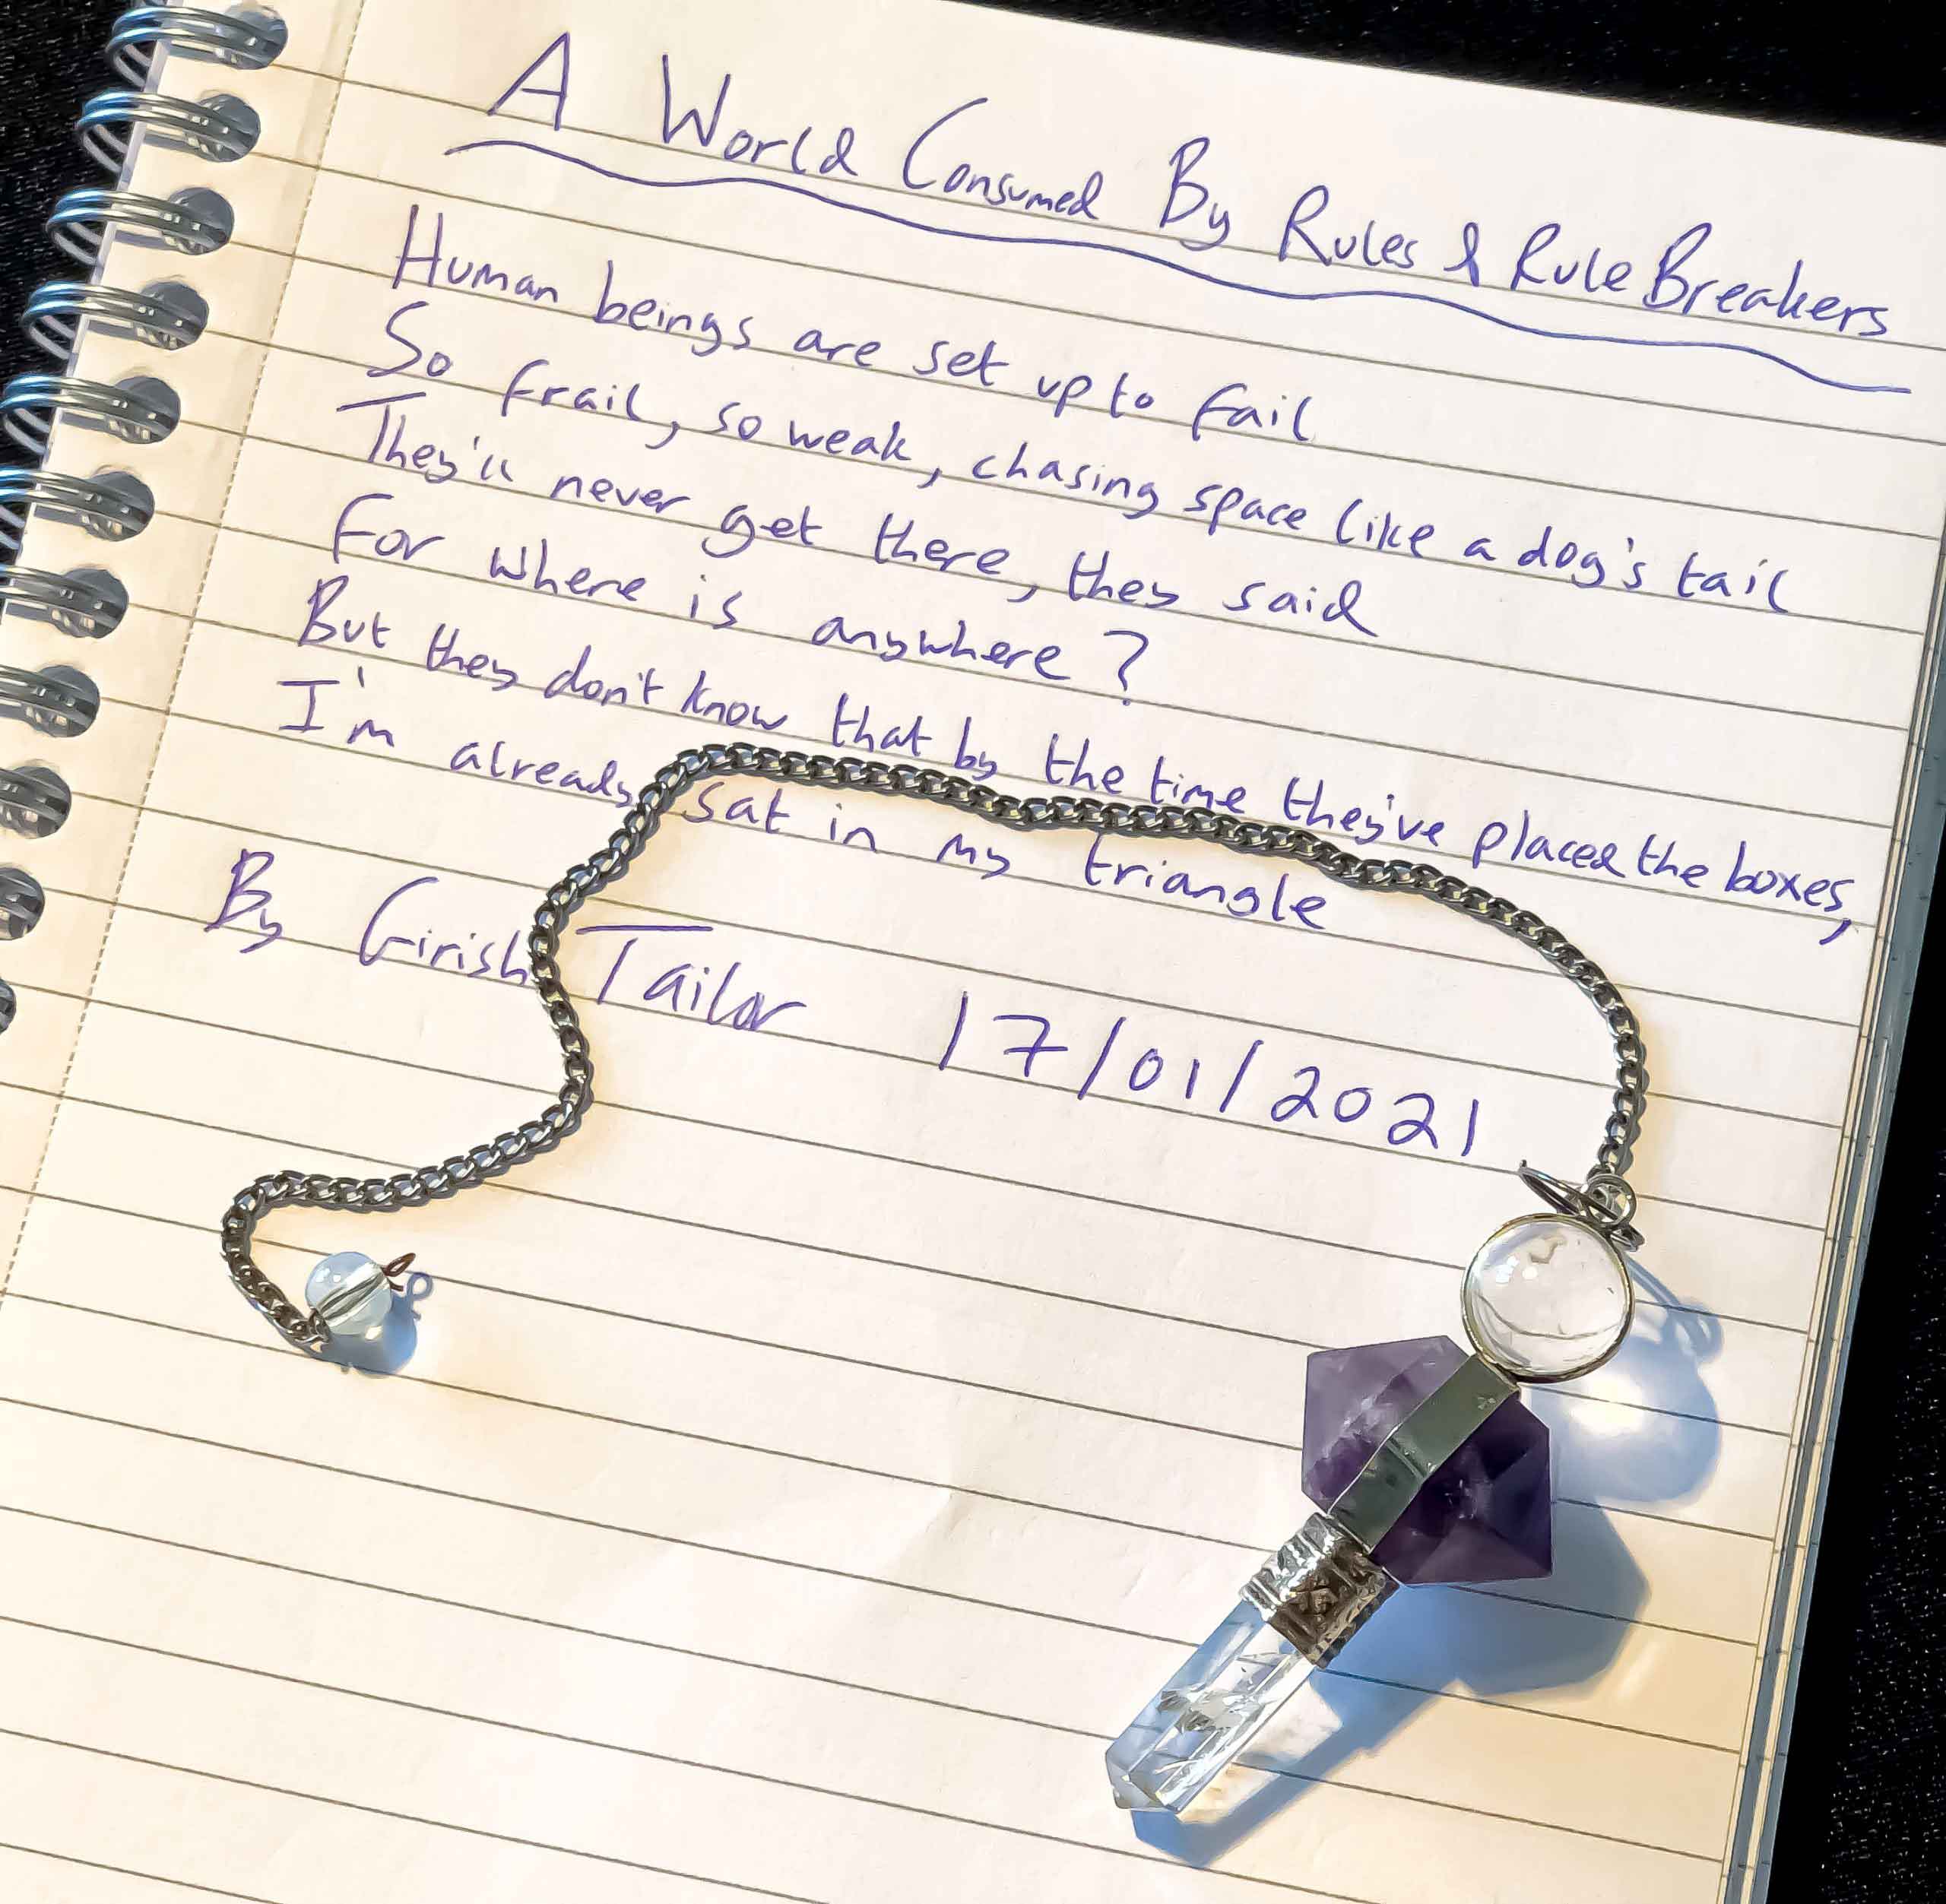 A World Consumed By Rules & Rule Breakers
Human beings are set up to fail
So frail, so weak, chasing space like a dog's tail
They'll never get there, they said
For where is anywhere?
But they don't know that by the time they've placed the boxes,
I'm already sat in my triangle
By Girish Tailor 17/01/2021